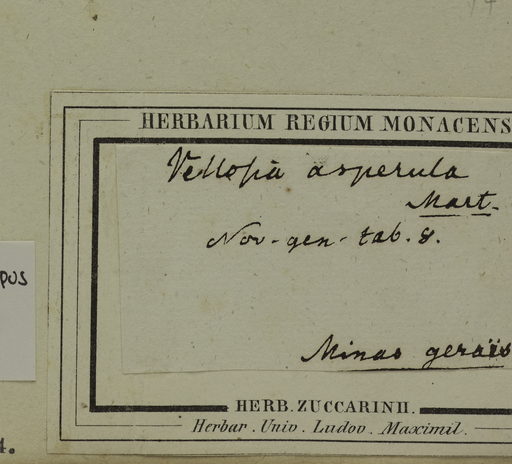 HERBARIUM REGIUM MONACENS
Vellosia asperula
Mart.
Nov. gen. tab. 8.
Minas geraïs
HERB. ZUCCARINII.
Herbar. Univ. Ludov. Maximil.